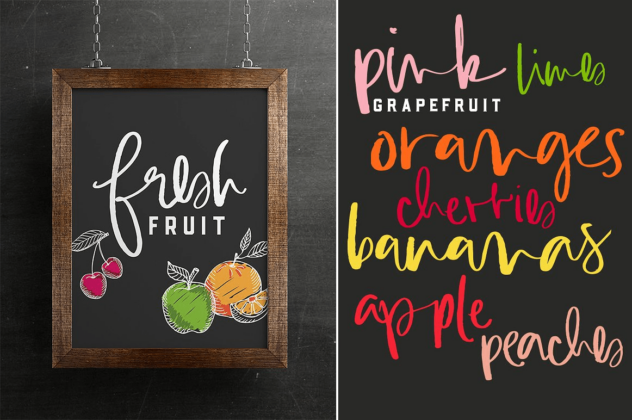 fresh
FRUIT
pink limes
GRAPEFRUIT
oranges
cherries
bananas
apple
peaches